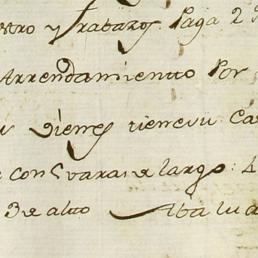 stro y Trabaxos Paga 2
Arrendamientto Por
Vienes tiene su Ca
con 5 varas de largo: 4
3 de altto Abalua